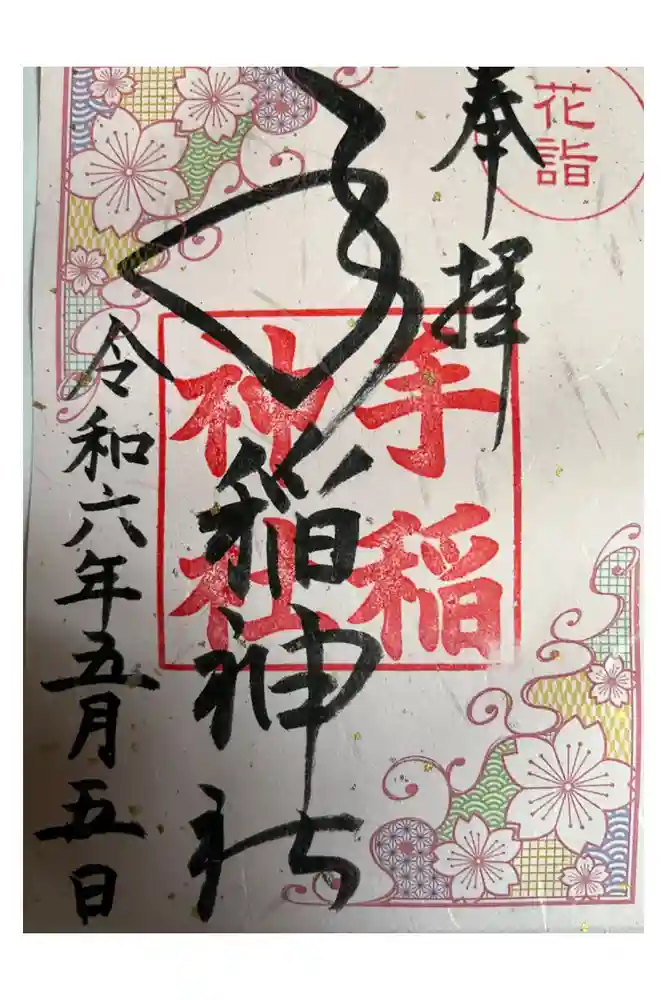 花詣
奉拝
手稲神社
手稲
神社
令和六年五月五日